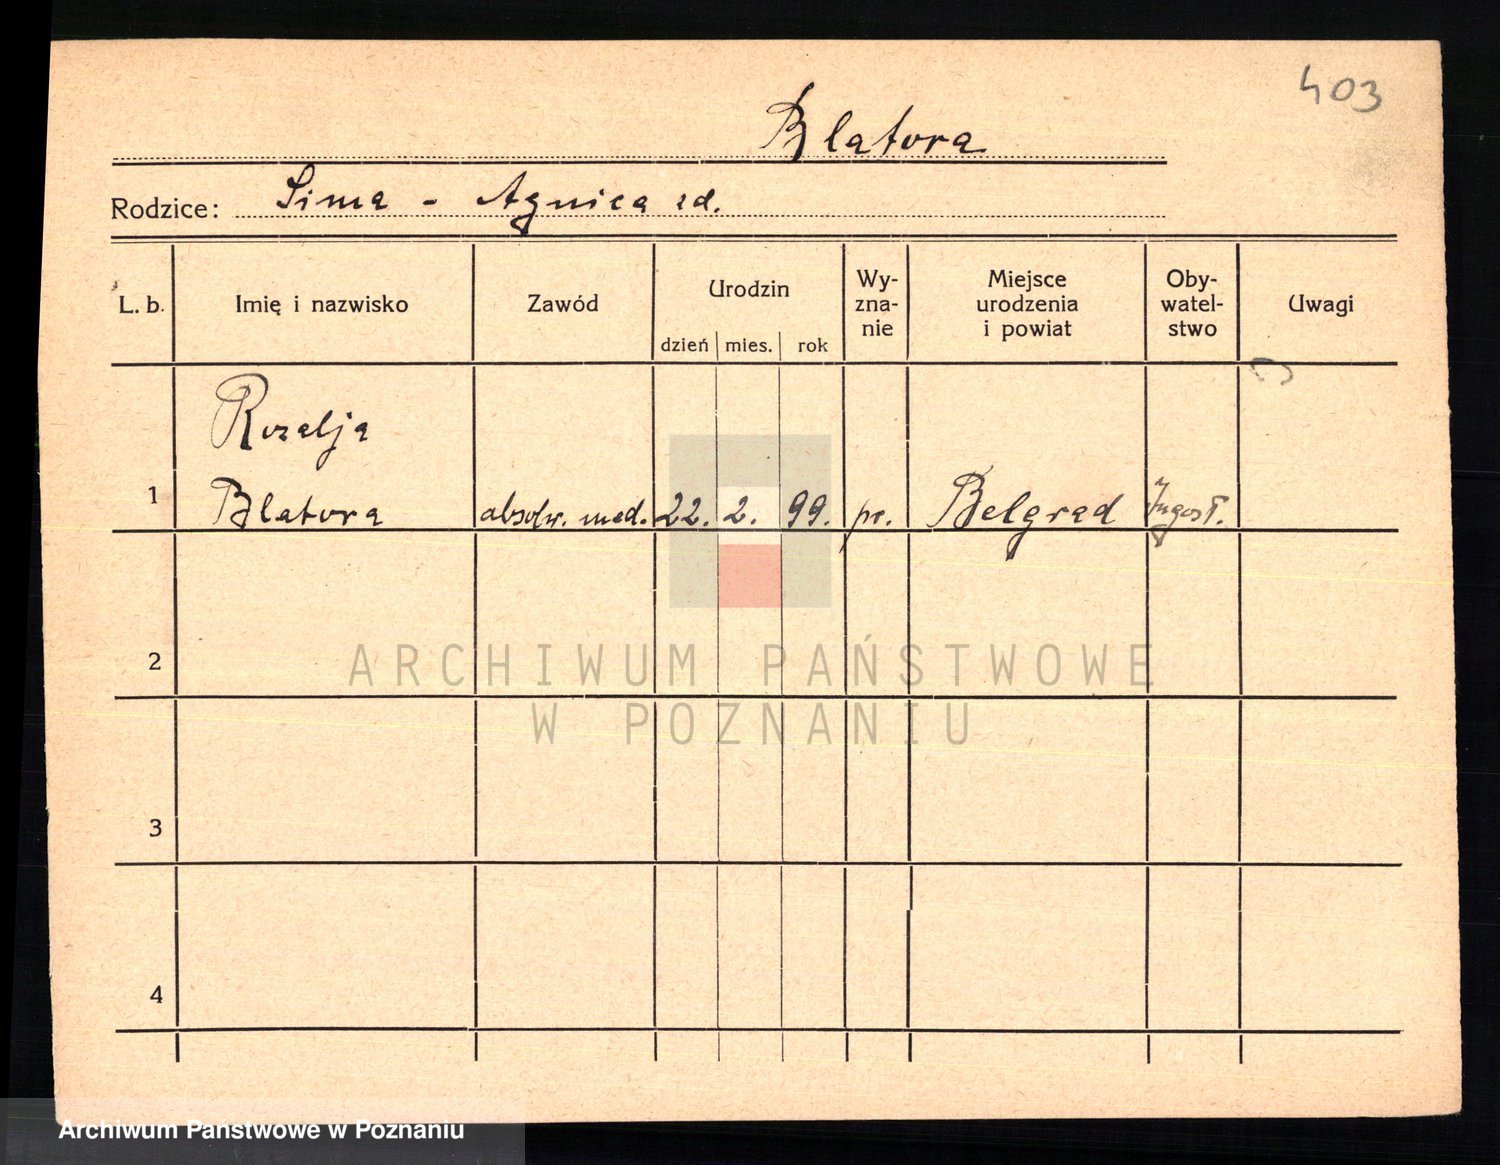 403
Blatora
Rodzice: Sima - Agnica zd.
L. b. Imię i nazwisko Zawód Urodzin dzień mies. rok Wy-zna-nie Miejsce urodzenia i powiat Oby-watel-stwo Uwagi
Rozalja
1 Blatora absolw. med. 22. 2. 99. pr. Belgrad Jugosł.
2
ARCHIWUM PAŃSTWOWE
W POZNANIU
3
4
Archiwum Państwowe w Poznaniu